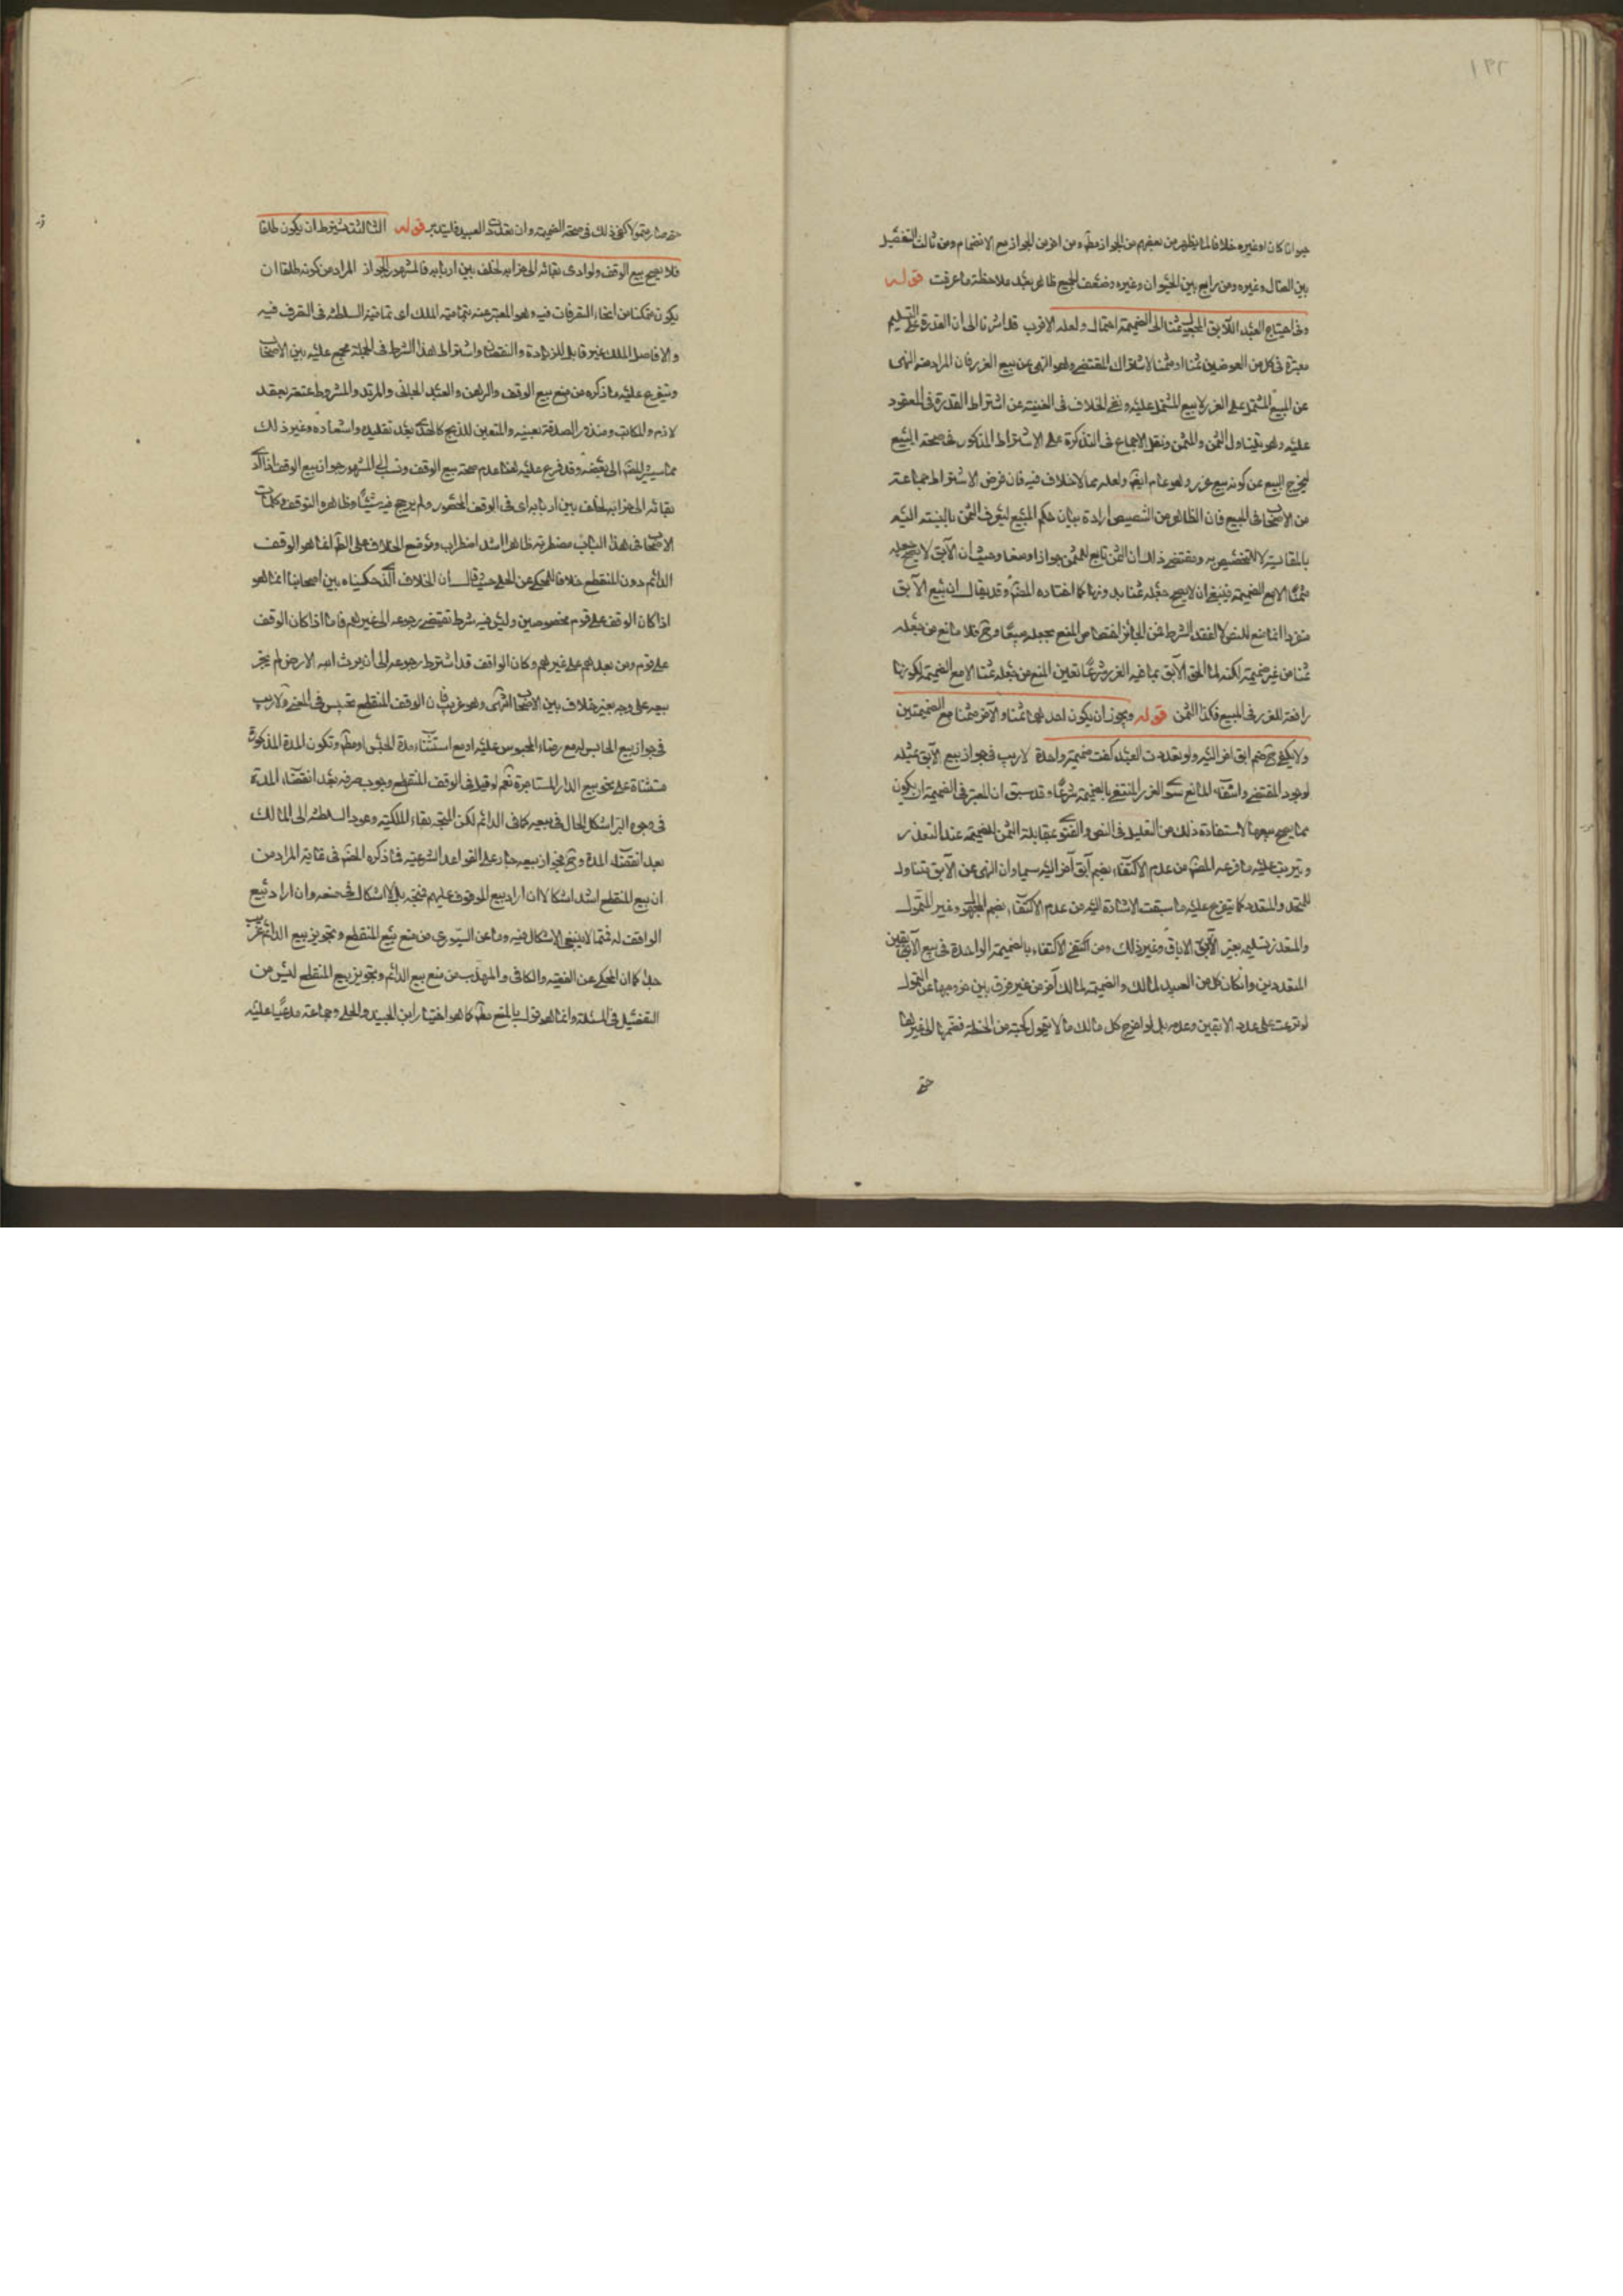 ١٣٢
حيوانا كان او غيره خلافا لما يظهر من بعضهم من الجواز مطم ومن اخر من الجواز مع الانضمام ومن ثالث التفصيل
بين الضال وغيره ومن رابع بين الحيوان وغيره وضعف الجميع ظاهر بعد ملاحظة ما عرفت قوله
وفى احتياج العبد الآبق المجعول ثمنا الى الضميمة احتمال ولعله الاقرب قد اشرنا الى ان القدرة على التسليم
معتبرة فى كل من العوضين ثمنا او مثمنا لاشتراك المقتضى وهو النهى عن بيع الغرر فان المراد منه النهى
عن البيع المشتمل على الغرر لا بيع المشتمل عليه ونفى الخلاف فى الغنية عن اشتراط القدرة فى المعقود
عليه وهو يتناول الثمن والمثمن ونقل الاجماع فى التذكرة على الاشتراط المذكور فى صحة البيع
ليخرج البيع عن كونه بيع غرر وهو عام ايضا ولعله مما لا خلاف فيه فان فرض الاشتراط جماعة
من الاصحاب فى المبيع فان الظاهر من التخصيص ارادة بيان حكم المبيع ليعرف الثمن بالنسبة اليه
بالمقايسة لا التخصيص به ومقتضى ذلك ان الثمن تابع للمثمن جوازا ومنعا وحيث ان الآبق لا يصح جعله
مثمنا الا مع الضميمة فينبغى ان لا يصح جعله ثمنا بدونها كما اختاره المضم وقد يقال ان بيع الآبق
منفردا انما منع للنص لا لفقد الشرط فمن الجائز اختصاص المنع بجعله مبيعا وح فلا مانع من جعله
ثمنا من غير ضميمة لكنه لما الحق الآبق بما فيه الغرر شرعا تعين المنع من جعله ثمنا الا مع الضميمة لكونها
رافعة للغرر فى المبيع فكذا الثمن قوله ويجوز ان يكون احدهما ثمنا والآخر مثمنا مع الضميمتين
ولا يكفى ضم ابق اخر اليه ولو تعددت العبيد كفت ضميمة واحدة لا ريب فى جواز بيع الآبق بمثله
لوجود المقتضى وانتفاء المانع سوى الغرر المنتفى بالضميمة شرعا وقد سبق ان المعتبر فى الضميمة ان يكون
مما يصح بيعها لاستفادة ذلك من التعليل فى النص والفتوى بمقابلة الثمن للضميمة عند التعذر
ويترتب عليه ما فرعه المضم من عدم الاكتفاء بضم آبق آخر اليه سيما وان النهى عن الآبق يتناول
المتحد والمتعدد كما يتفرع عليه ما سبقت الاشارة اليه من عدم الاكتفاء بضم المجهول وغير المتمول
والمتعذر تسليمه بغير الاباق وغير ذلك ومن اكتفى الاكتفاء بالضميمة الواحدة فى بيع الآبقين
المتعددين وان كان كل من العبيد لمالك والضميمة لمالك آخر من غير فرق بين خروجها عن التمول
لو توزعت على عدد الابقين وعدمه بل لو اخرج كل مالك ما لا يتمول كحبة من الحنطة فضمها الى غيرها
حتى
حتى صار متمولا كفى ذلك فى صحة الضميمة وان تعدد العبيد فليتدبر قوله الثالث يشترط ان يكون طلقا
فلا يصح بيع الوقف ولو ادى بقائه الى خرابه لخلف بين اربابه فالمشهور الجواز المراد من كونه طلقا ان
يكون متمكنا من انحاء التصرفات فيه وهو المعبر عنه بتمامية الملك اى تمامية السلطنة فى التصرف فيه
والا فاصل الملك غير قابل للزيادة والنقصان واشتراط هذا الشرط فى الجملة مجمع عليه بين الاصحاب
ويتفرع عليه ما ذكره من منع بيع الوقف والرهن والعبد الجانى والمرتد والمشروط عتقه بعقد
لازم والمكاتب ومنذور الصدقة بعينه والمتعين للذبح كالهدى بعد تقليده واشعاره وغير ذلك
مما سيشير المضم الى بعضه وقد فرع عليه هنا عدم صحة بيع الوقف ونسب الى المشهور جواز بيع الوقف اذا ادى
بقائه الى خرابه لخلف بين اربابه اى فى الوقف المخصوص ولم يرجح فيه شيئا وظاهره التوقف وكلمات
الاصحاب فى هذا الباب مضطربة ظاهرا اشد اضطراب وموضع الخلاف على الظ انما هو الوقف
الدائم دون المنقطع خلافا للمحكى عن الحلى حيث قال ان الخلاف الذى حكيناه بين اصحابنا انما هو
اذا كان الوقف على قوم مخصوصين وليس فيه شرط يقتضى رجوعه الى غيرهم فاما اذا كان الوقف
على قوم ومن بعدهم على غيرهم وكان الواقف قد اشترط رجوعه الى ان يرث الله الارض لم يجز
بيعه على وجه بغير خلاف بين الاصحاب انتهى وهو غريب فان الوقف المنقطع تحبيس فى المعنى ولا ريب
فى جواز بيع الحابس له مع رضاء المحبوس عليه او مع استثناء مدة الحبس او مطم وتكون المدة المذكورة
مستثناة على نحو بيع الدار المستاجرة نعم لو قيل فى الوقف المنقطع بوجوب صرفه بعد انقضاء المدة
فى وجوه البر اشكل الحال فى بيعه كما فى الدائم لكن المتجه بقاء الملكية وعود السلطنة الى المالك
بعد انقضاء المدة وح فجواز بيعه جار على القواعد الشرعية فما ذكره المضم فى غاية المراد من
ان بيع المنقطع اشد اشكالا ان اراد بيع الموقوف عليهم فمتجه بل لا اشكال فى منعه وان اراد بيع
الواقف له فمما لا ينبغى الاشكال فيه وما عن السيورى من منع بيع المنقطع وتجويز بيع الدائم غريب
جدا كما ان المحكى عن الفقيه والكافى والمهذب من منع بيع الدائم وتجويز بيع المنقطع ليس من
التفصيل فى المسئلة وانما هو قول بالمنع مطم كما هو اختيار ابن الجنيد والحلى وجماعة مدعيا عليه